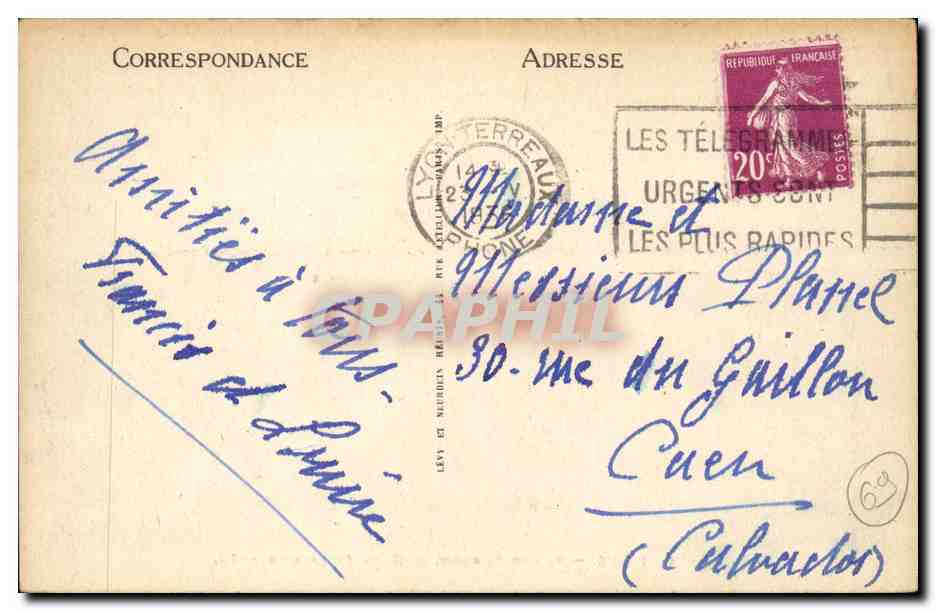 CORRESPONDANCE
ADRESSE
Amitiés à tous-
Francis et
LÉVY ET NEURDEIN RÉUNIS, 44 RUE LETELLIER, PARIS IMP.
LYON-TERREAUX
14
1936
RHONE
RÉPUBLIQUE FRANÇAISE
20c
POSTES
LES TÉLÉGRAMMES
URGENTS SONT
LES PLUS RAPIDES
Madame et
Messieurs Planel
30. rue du Gaillon
Caen
(Calvados)
69
CPAPHIL